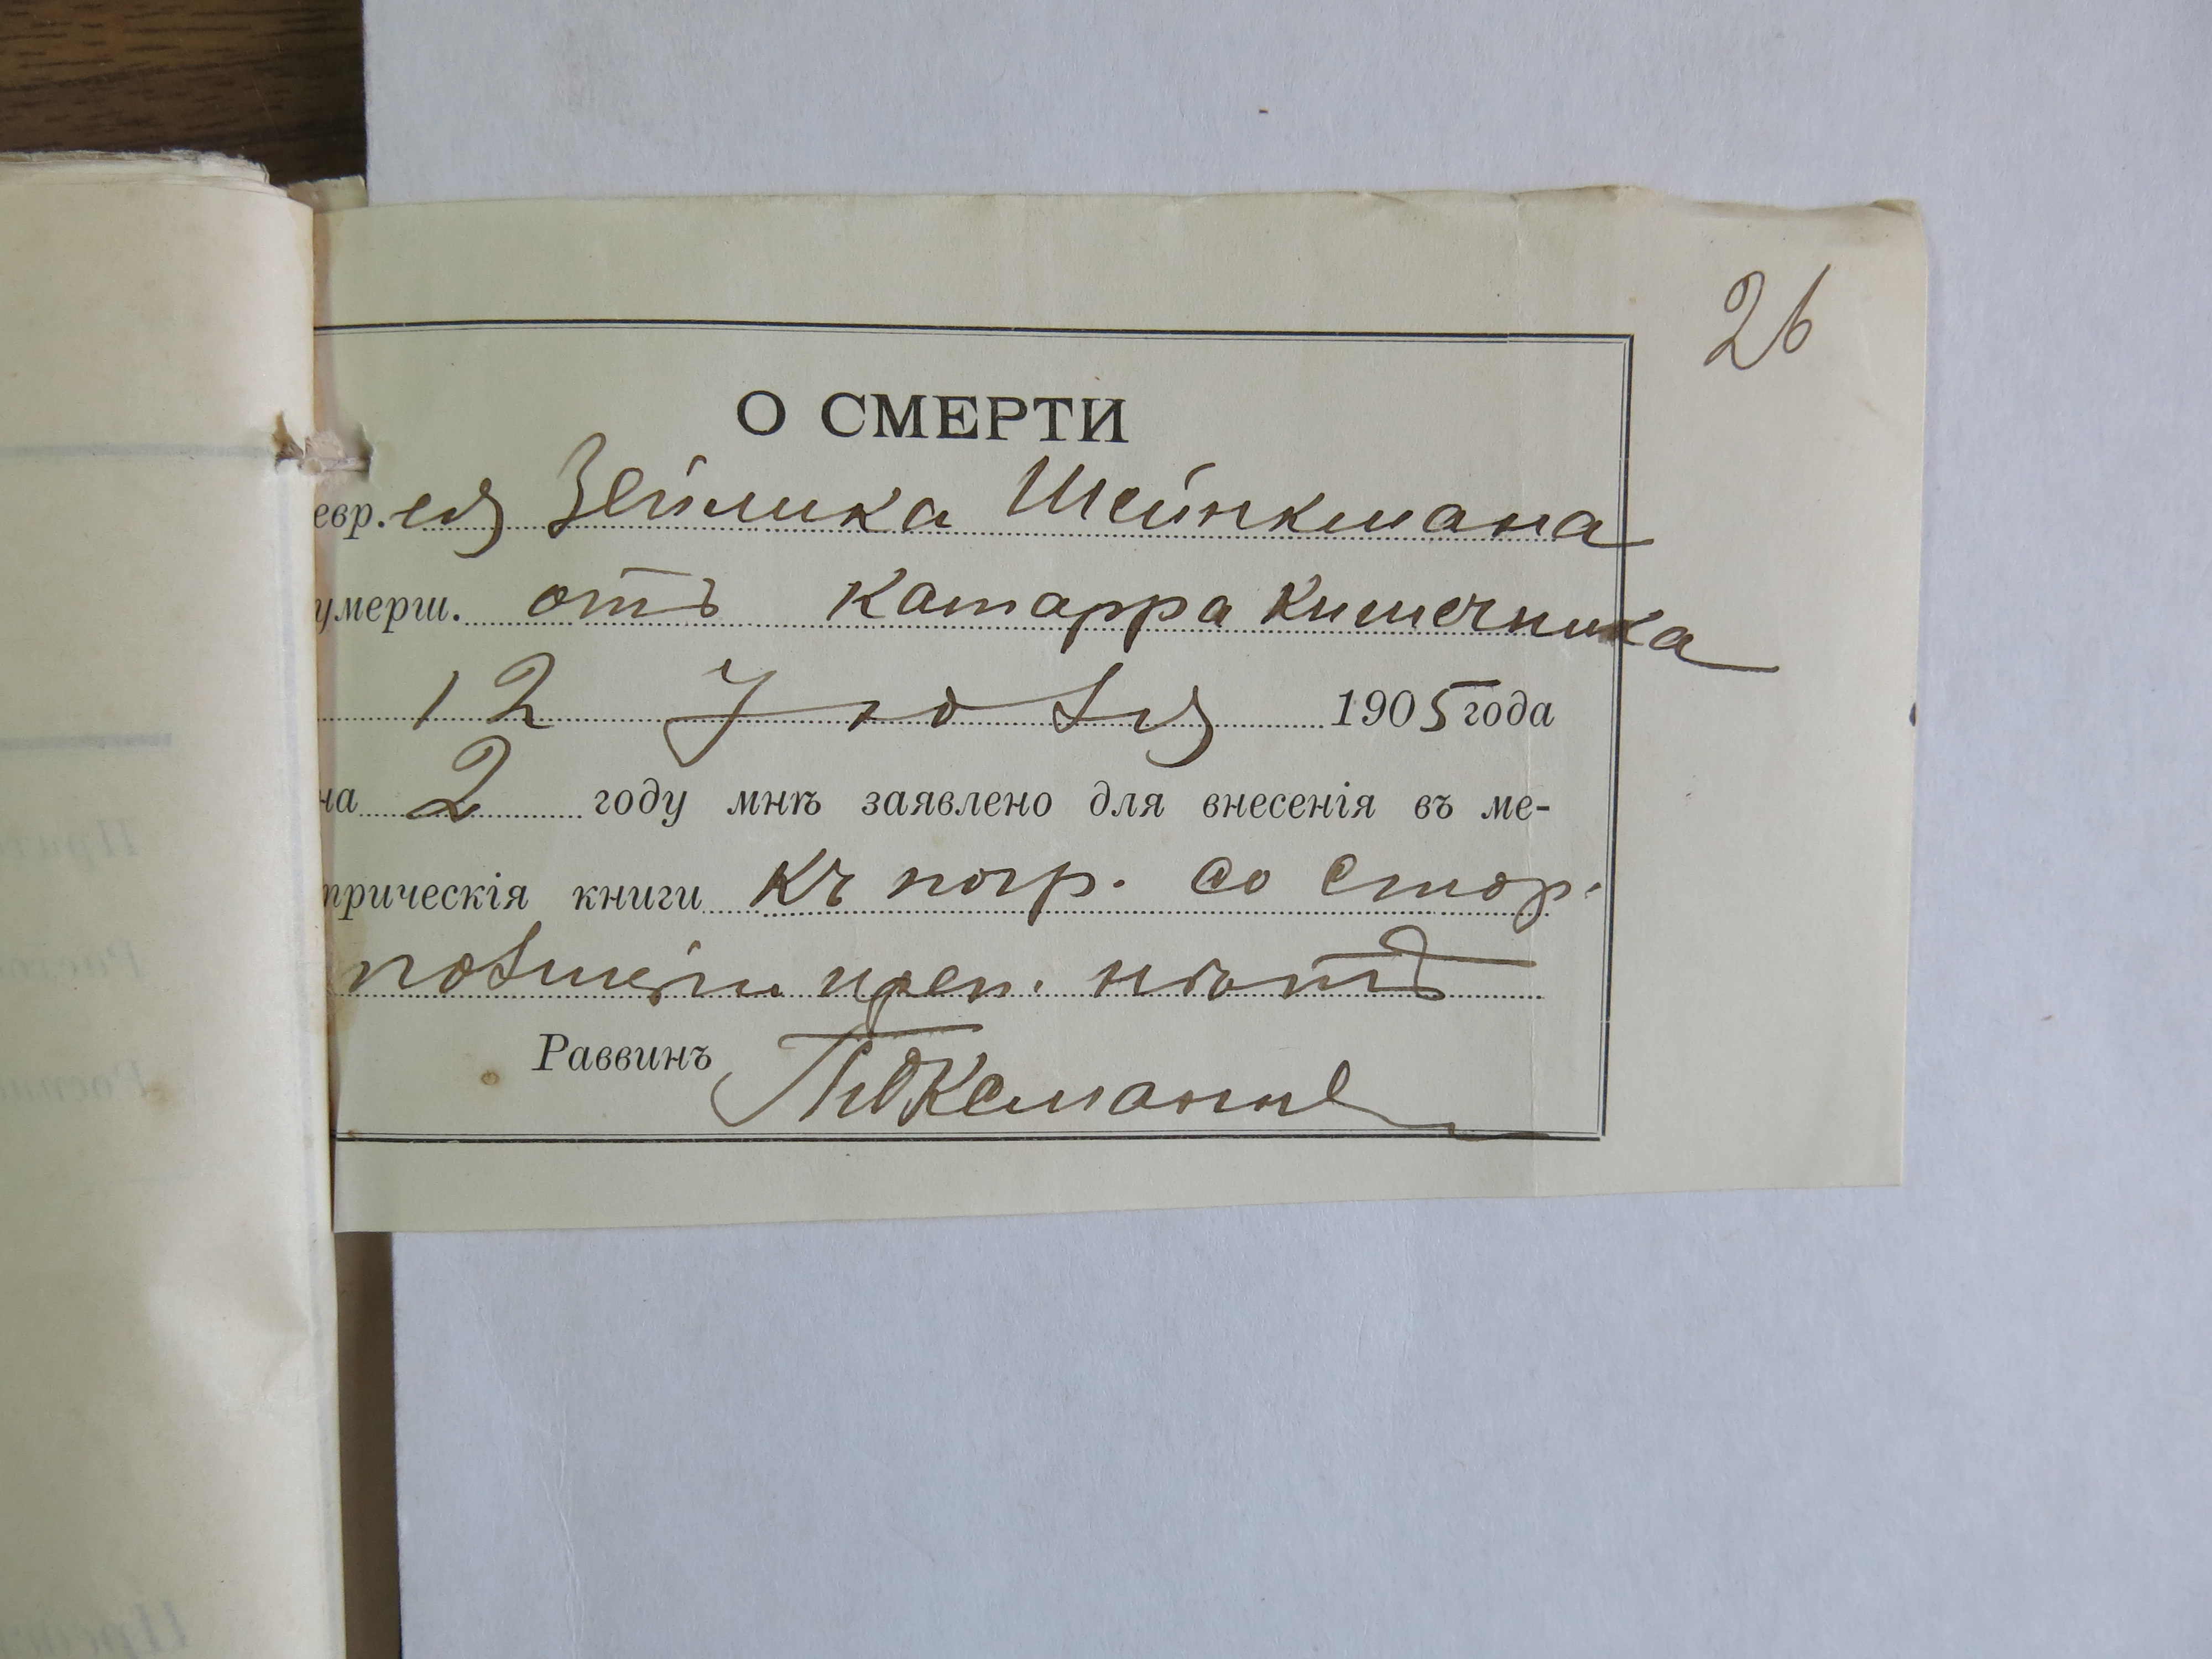 26
О СМЕРТИ
евр. ея Зейлика Шейнкмана
умерш. отъ катарра кишечника
12 Июля 1905 года
на 2 году мнѣ заявлено для внесенія въ ме-
трическія книги къ погр. со стор.
полиціи преп. нѣтъ
Раввинъ